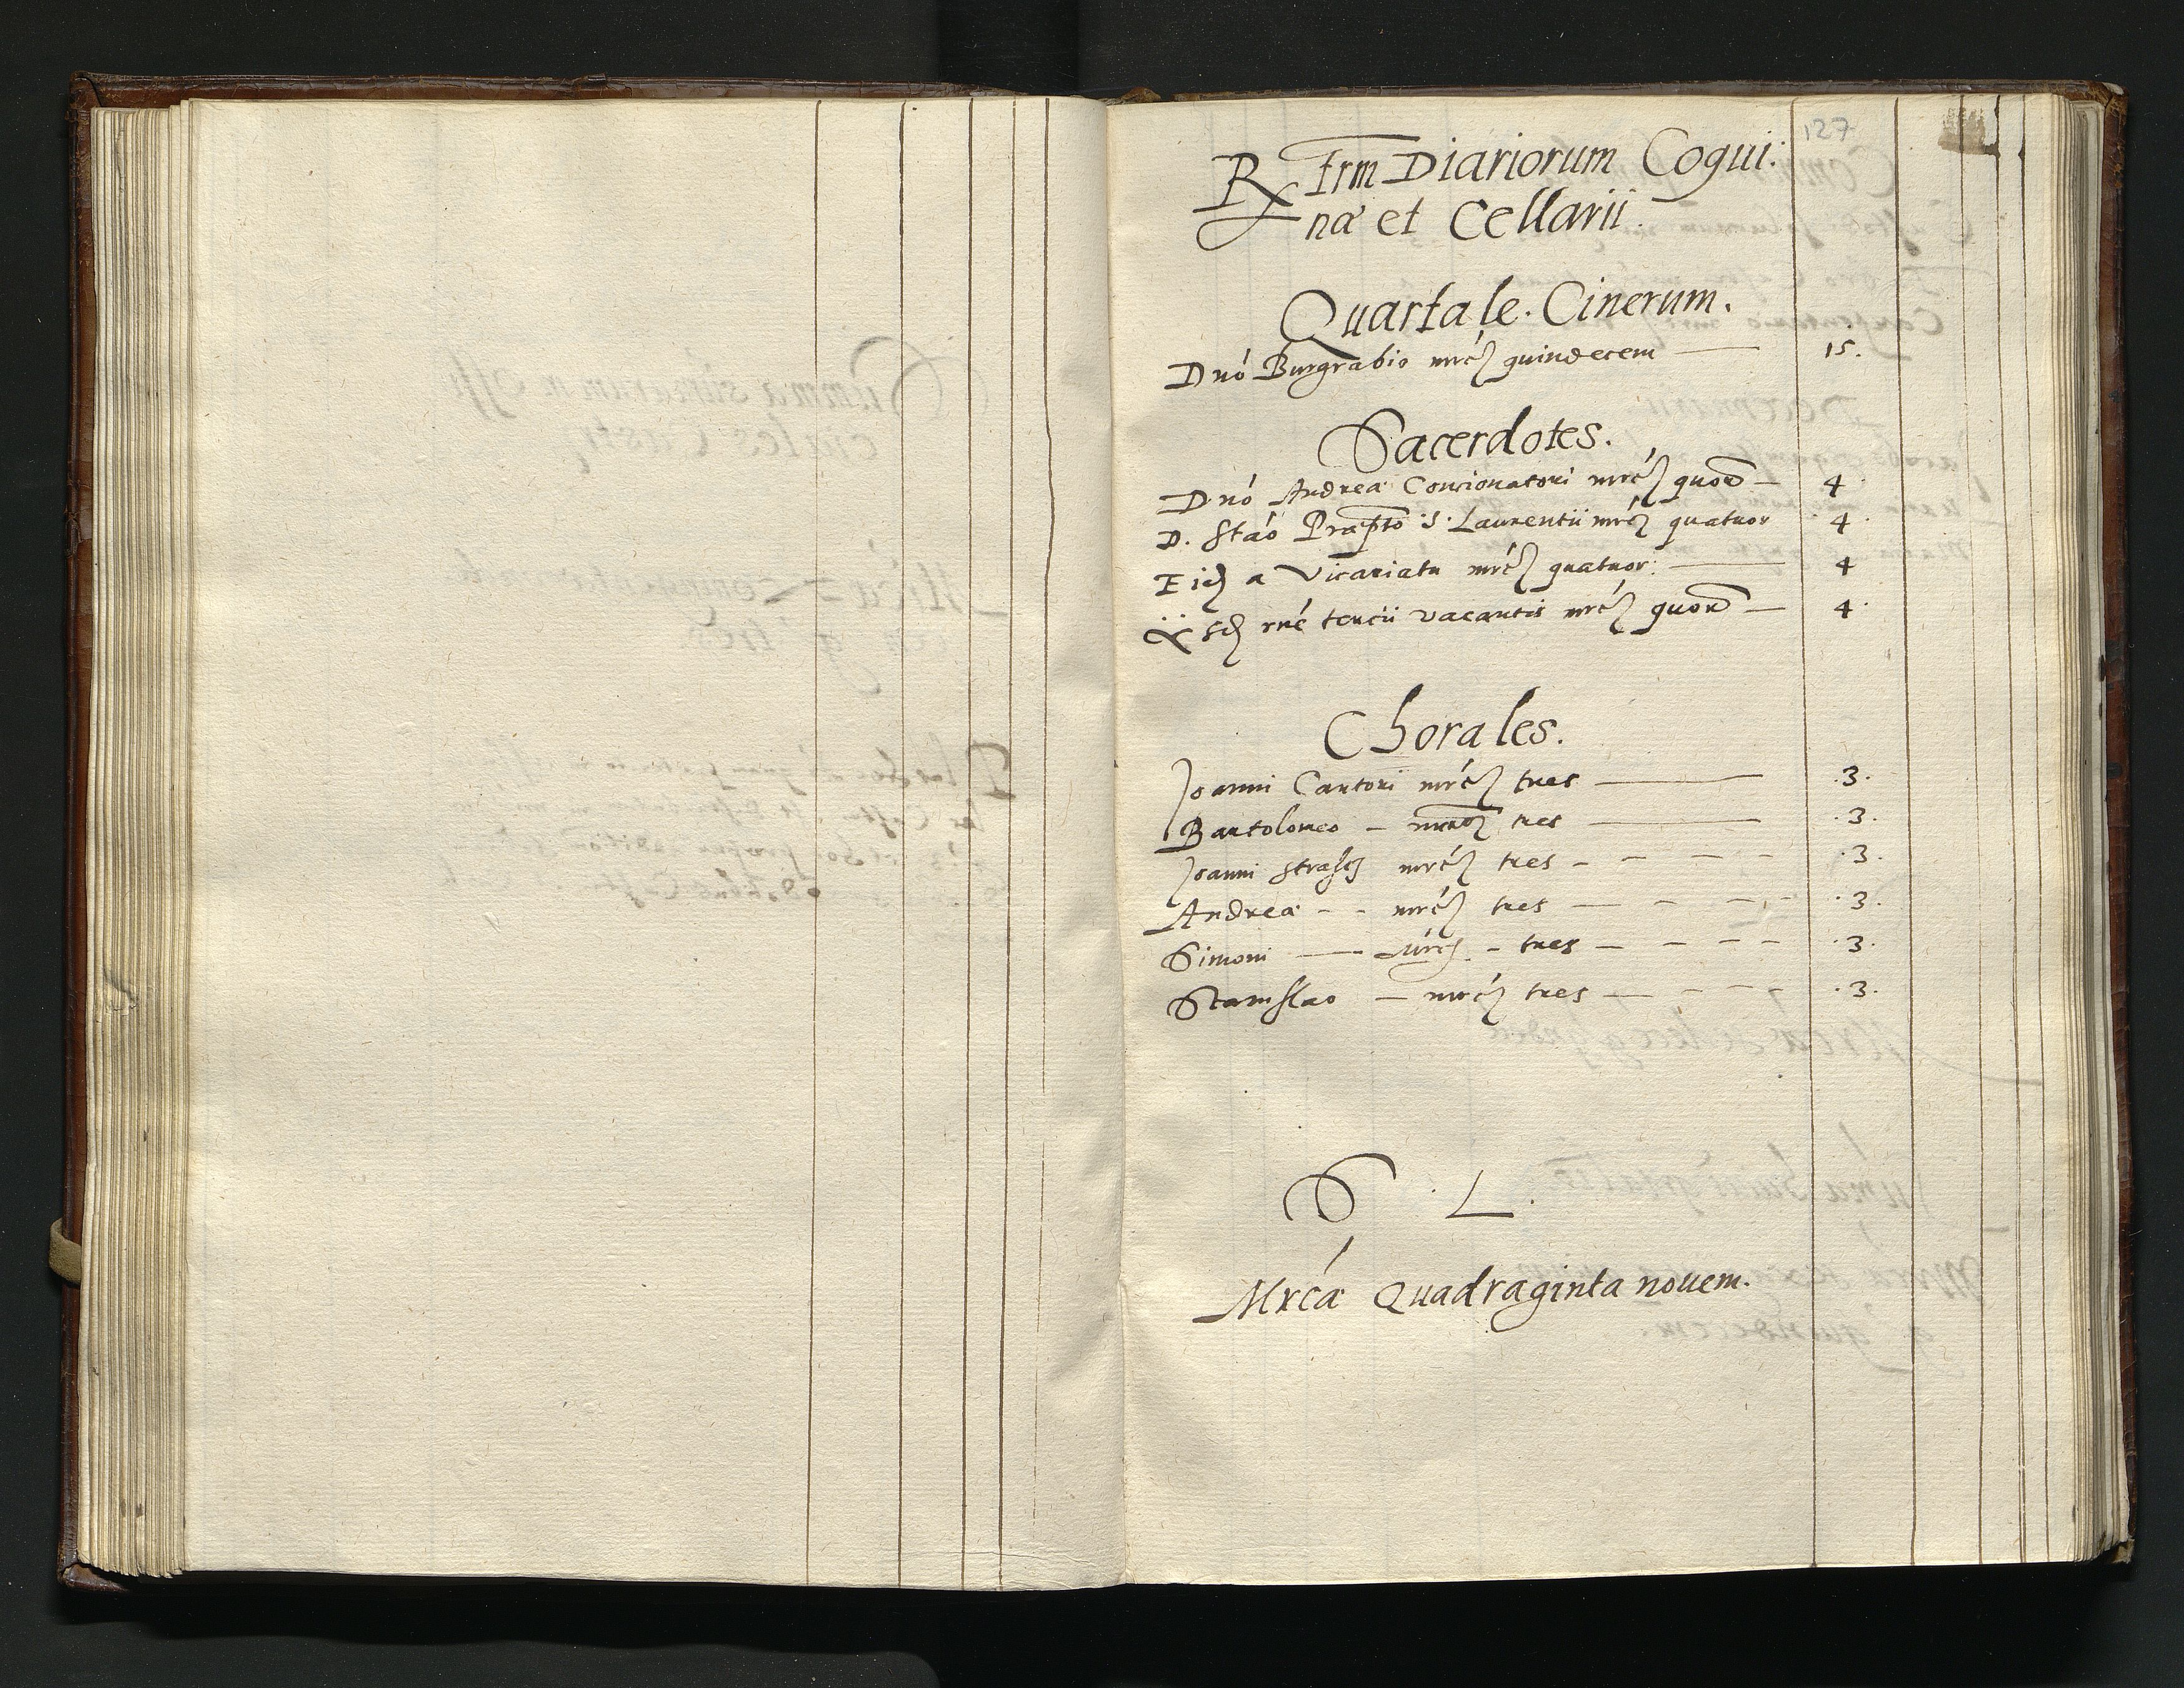 127
Rx Frm Diariorum Coqui:
næ et Cellarii.
Quartale. Cinerum.
Dnó Burgrabio mrcę quindecem — 15.
Sacerdotes.
Dnó Andreæ Concionatori mrcę quor — 4
D. Stáo Præpto S. Laurentii mrcę quatuor 4
Eidę a Vicariatu mrcę quatuor. — 4
tertii vacantis mrcę quor — 4
Chorales.
Joanni Cantori mrcę tres — .3.
Bartolomeo — mrcę tres — .3.
Joanni mrcę tres - - - - - .3.
Andreæ - - mrcę tres — - - - .3.
Simoni — Mrcę - tres — - - - .3.
Stanislao — mrcę tres — - - - .3.
S. L.
Mrcæ Quadraginta nouem.